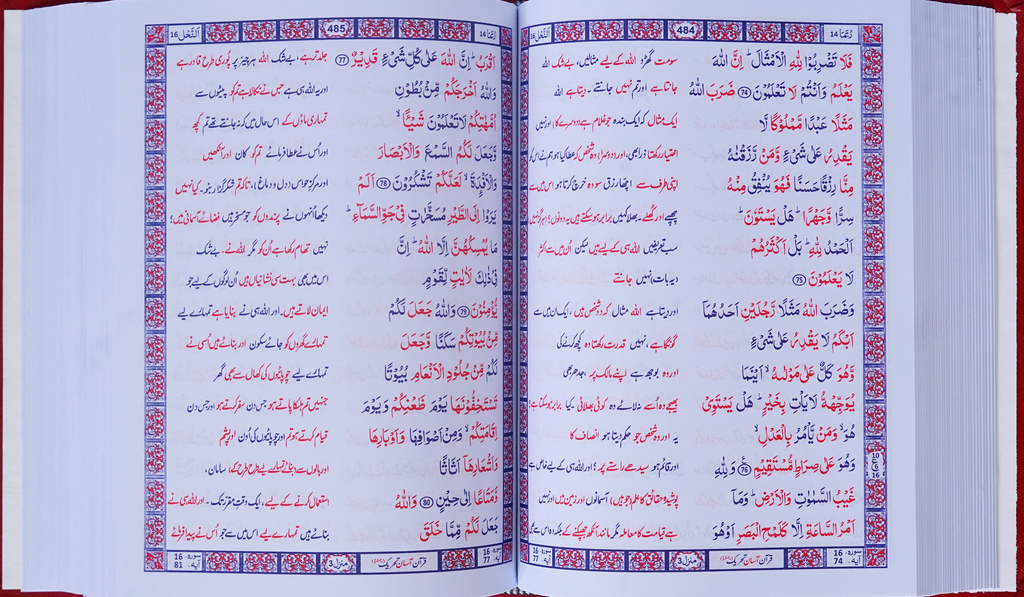 رُبَمَا 14
484
اَلنَّحْل 16
فَلَا تَضْرِبُوْا لِلّٰهِ الْاَمْثَالَ ؕ اِنَّ اللّٰهَ
سو مت گھڑو اللہ کے لیے مثالیں، بے شک اللہ
يَعْلَمُ وَاَنْتُمْ لَا تَعْلَمُوْنَ 74 ضَرَبَ اللّٰهُ
جانتا ہے اور تم نہیں جانتے۔ دیتا ہے اللہ
مَثَلًا عَبْدًا مَّمْلُوْكًا لَّا
ایک مثال کہ ایک بندہ جو غلام ہے (دوسرے کا) اور نہیں
يَقْدِرُ عَلٰى شَىْءٍ وَّمَنْ رَّزَقْنٰهُ
اختیار رکھتا ذرا بھی، اور (دوسرا) وہ شخص کہ عطا کیا ہو ہم نے اس کو
مِنَّا رِزْقًا حَسَنًا فَهُوَ يُنْفِقُ مِنْهُ
اپنی طرف سے اچھا رزق سو وہ خرچ کرتا ہو اس میں سے
سِرًّا وَّجَهْرًا ؕ هَلْ يَسْتَوٗنَ ؕ
چھپے اور کھلے۔ بھلا کہیں برابر ہوسکتے ہیں یہ دونوں؟ ہرگز نہیں
اَلْحَمْدُ لِلّٰهِ ؕ بَلْ اَكْثَرُهُمْ
سب تعریفیں اللہ ہی کے لیے ہیں لیکن اُن میں سے اکثر
لَا يَعْلَمُوْنَ 75
(یہ بات) نہیں جانتے
وَضَرَبَ اللّٰهُ مَثَلًا رَّجُلَيْنِ اَحَدُهُمَاۤ
اور دیتا ہے اللہ مثال کہ دو شخص ہیں، ایک ان میں سے
اَبْكَمُ لَا يَقْدِرُ عَلٰى شَىْءٍ
گونگا ہے، نہیں قدرت رکھتا وہ کچھ کرنے کی
وَّهُوَ كَلٌّ عَلٰى مَوْلٰىهُ ۙ اَيْنَمَا
اور وہ بوجھ ہے اپنے مالک پر، جدھر بھی
يُوَجِّهْهُّ لَا يَاْتِ بِخَيْرٍ ؕ هَلْ يَسْتَوِىْ
بھیجے وہ اُسے نہ لائے وہ کوئی بھلائی۔ کیا برابر ہوسکتا ہے
هُوَ ۙ وَمَنْ يَّاْمُرُ بِالْعَدْلِ ۙ
یہ اور وہ شخص جو حکم دیتا ہو انصاف کا
وَهُوَ عَلٰى صِرَاطٍ مُّسْتَقِيْمٍ 76 وَلِلّٰهِ
اور قائم ہو سیدھے راستے پر؟ اور اللہ ہی کے لیے خاص ہے
غَيْبُ السَّمٰوٰتِ وَالْاَرْضِ ؕ وَمَاۤ
پوشیدہ حقائق کا علم جو ہیں آسمانوں اور زمین میں اور نہیں
اَمْرُ السَّاعَةِ اِلَّا كَلَمْحِ الْبَصَرِ اَوْ هُوَ
ہے قیامت کا معاملہ مگر مانند آنکھ جھپکنے کے بلکہ وہ اس سے بھی
10
ع
16
سورة-16
آیة-74
قرآن آسان تحریک
منزل 3
سورة-16
آیة-77
رُبَمَا 14
485
اَلنَّحْل 16
اَقْرَبُ ؕ اِنَّ اللّٰهَ عَلٰى كُلِّ شَىْءٍ قَدِيْرٌ 77
جلد تر ہے، بے شک اللہ ہر چیز پر پُوری طرح قادر ہے
وَاللّٰهُ اَخْرَجَكُمْ مِّنْۢ بُطُوْنِ
اور یہ اللہ ہی ہے جس نے نکالا ہے تم کو پیٹوں سے
اُمَّهٰتِكُمْ لَا تَعْلَمُوْنَ شَيْـًٔا ۙ
تمہاری ماؤں کے اس حال میں کہ نہ جانتے تھے تم کچھ
وَّجَعَلَ لَكُمُ السَّمْعَ وَالْاَبْصَارَ
اور اُس نے عطا فرمائے تم کو کان اور آنکھیں
وَالْاَفْـِٕدَةَ ۙ لَعَلَّكُمْ تَشْكُرُوْنَ 78 اَلَمْ
اور مرکزِ حواس دل و دماغ، تاکہ تم شکر گزار بنو۔ کیا نہیں
يَرَوْا اِلَى الطَّيْرِ مُسَخَّرٰتٍ فِىْ جَوِّ السَّمَآءِ ؕ
دیکھا اُنہوں نے پرندوں کو جو مسخر ہیں فضائے آسمانی میں؟
مَا يُمْسِكُهُنَّ اِلَّا اللّٰهُ ؕ اِنَّ
نہیں تھام رکھا ہے اُن کو مگر اللہ نے۔ بے شک
فِىْ ذٰلِكَ لَاٰيٰتٍ لِّقَوْمٍ
اس میں بھی بہت سی نشانیاں ہیں اُن لوگوں کے لیے جو
يُّؤْمِنُوْنَ 79 وَاللّٰهُ جَعَلَ لَكُمْ
ایمان لاتے ہیں۔ اور اللہ ہی نے بنایا ہے تمہارے لیے
مِّنْۢ بُيُوْتِكُمْ سَكَنًا وَّجَعَلَ
تمہارے گھروں کو جائے سکون اور بنائے ہیں اُسی نے
لَكُمْ مِّنْ جُلُوْدِ الْاَنْعَامِ بُيُوْتًا
تمہارے لیے چوپایوں کی کھال سے بھی گھر
تَسْتَخِفُّوْنَهَا يَوْمَ ظَعْنِكُمْ وَيَوْمَ
جنہیں تم ہلکا پاتے ہو جس دن سفر کرتے ہو اور جس دن
اِقَامَتِكُمْ ۙ وَمِنْ اَصْوَافِهَا وَاَوْبَارِهَا
قیام کرتے ہو تم اور چوپائیوں کی اُون اور پشم
وَاَشْعَارِهَاۤ اَثَاثًا
اور بالوں سے تمہارے لیے طرح طرح کے، سامان،
وَّمَتَاعًا اِلٰى حِيْنٍ 80 وَاللّٰهُ
استعمال کرنے کے لیے، ایک وقتِ مقرر تک۔ اور اللہ ہی نے
جَعَلَ لَكُمْ مِّمَّا خَلَقَ
بنائے ہیں تمہارے لیے اس میں سے جو اُس نے پیدا فرمائے
سورة-16
آیة-77
منزل 3
قرآن آسان تحریک
سورة-16
آیة-81